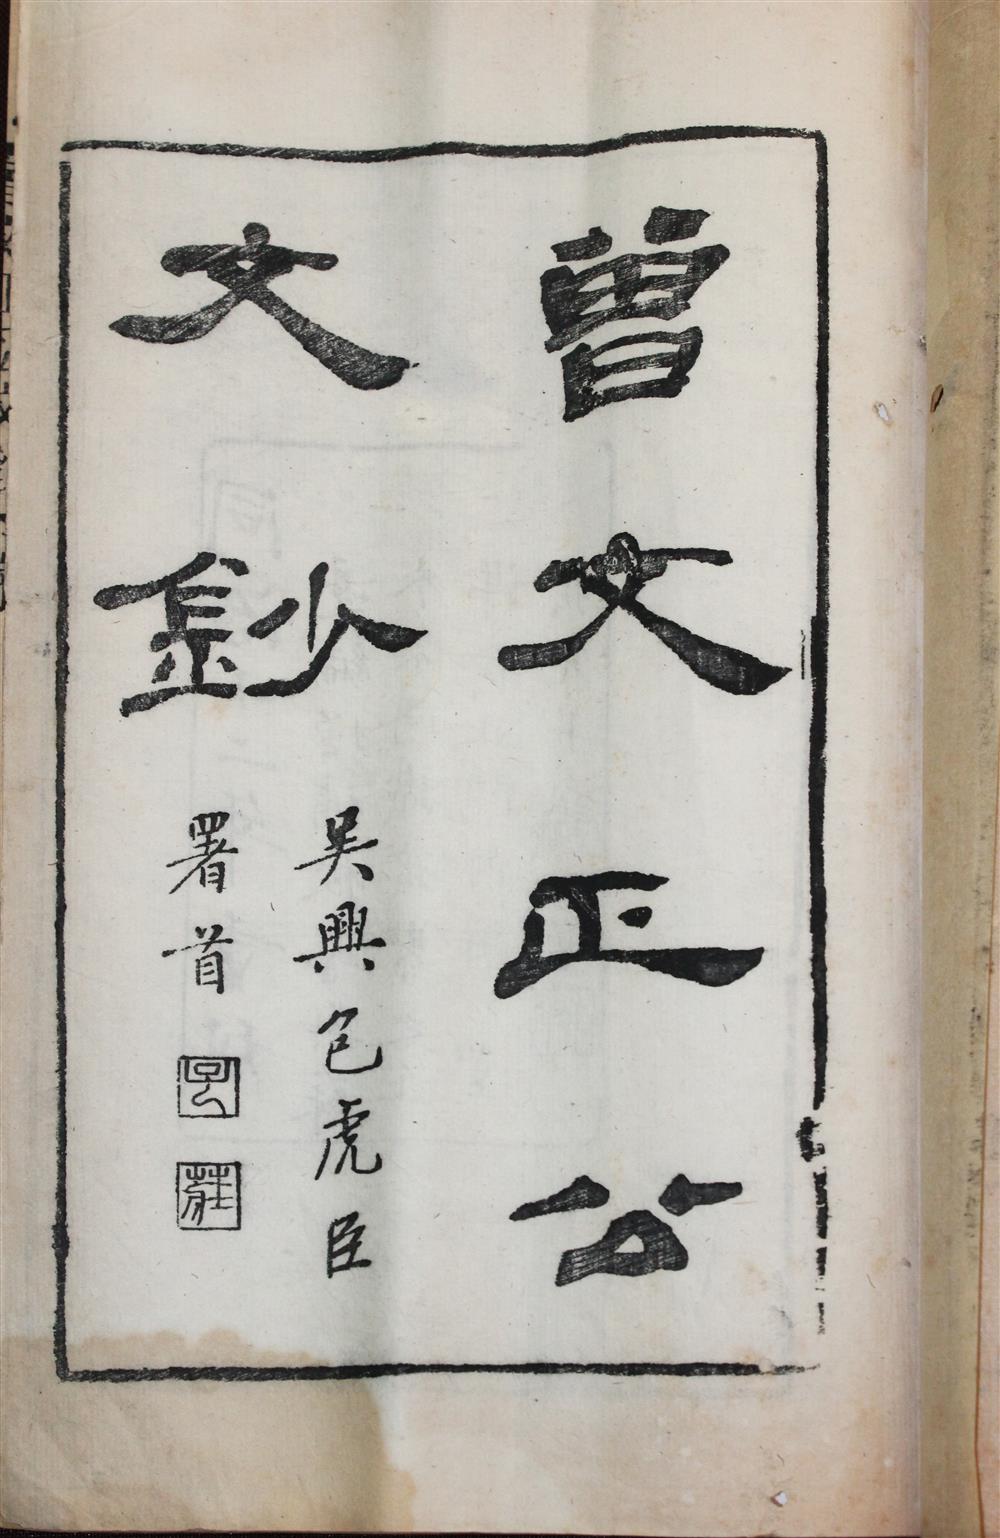 曾文正公
文鈔
吳興包虎臣
署首